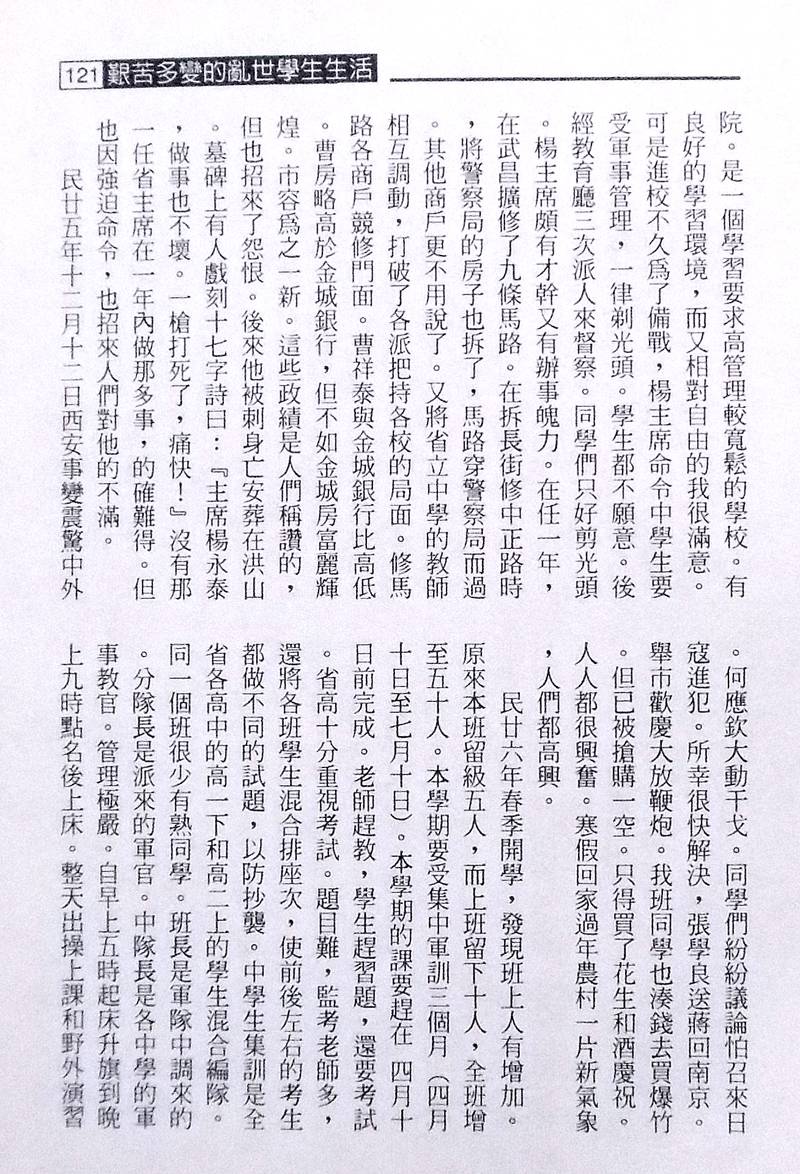 121 艱苦多變的亂世學生生活
院。是一個學習要求高管理較寬鬆的學校。有
良好的學習環境，而又相對自由的我很滿意。
可是進校不久爲了備戰，楊主席命令中學生要
受軍事管理，一律剃光頭。學生都不願意。後
經教育廳三次派人來督察。同學們只好剪光頭
。楊主席頗有才幹又有辦事魄力。在任一年，
在武昌擴修了九條馬路。在拆長街修中正路時
，將警察局的房子也拆了，馬路穿警察局而過
。其他商戶更不用說了。又將省立中學的教師
相互調動，打破了各派把持各校的局面。修馬
路各商戶競修門面。曹祥泰與金城銀行比高低
。曹房略高於金城銀行，但不如金城房富麗輝
煌。市容爲之一新。這些政績是人們稱讚的，
但也招來了怨恨。後來他被刺身亡安葬在洪山
。墓碑上有人戲刻十七字詩曰：『主席楊永泰
，做事也不壞。一槍打死了，痛快！』沒有那
一任省主席在一年內做那多事，的確難得。但
也因強迫命令，也招來人們對他的不滿。
民廿五年十二月十二日西安事變震驚中外
。何應欽大動干戈。同學們紛紛議論怕召來日
寇進犯。所幸很快解決，張學良送蔣回南京。
舉市歡慶大放鞭炮。我班同學也湊錢去買爆竹
。但已被搶購一空。只得買了花生和酒慶祝。
人人都很興奮。寒假回家過年農村一片新氣象
，人們都高興。
民廿六年春季開學，發現班上人有增加。
原來本班留級五人，而上班留下十人，全班增
至五十人。本學期要受集中軍訓三個月（四月
十日至七月十日）。本學期的課要趕在 四月十
日前完成。老師趕教，學生趕習題，還要考試
。省高十分重視考試。題目難，監考老師多，
還將各班學生混合排座次，使前後左右的考生
都做不同的試題，以防抄襲。中學生集訓是全
省各高中的高一下和高二上的學生混合編隊。
同一個班很少有熟同學。班長是軍隊中調來的
。分隊長是派來的軍官。中隊長是各中學的軍
事教官。管理極嚴。自早上五時起床升旗到晚
上九時點名後上床。整天出操上課和野外演習